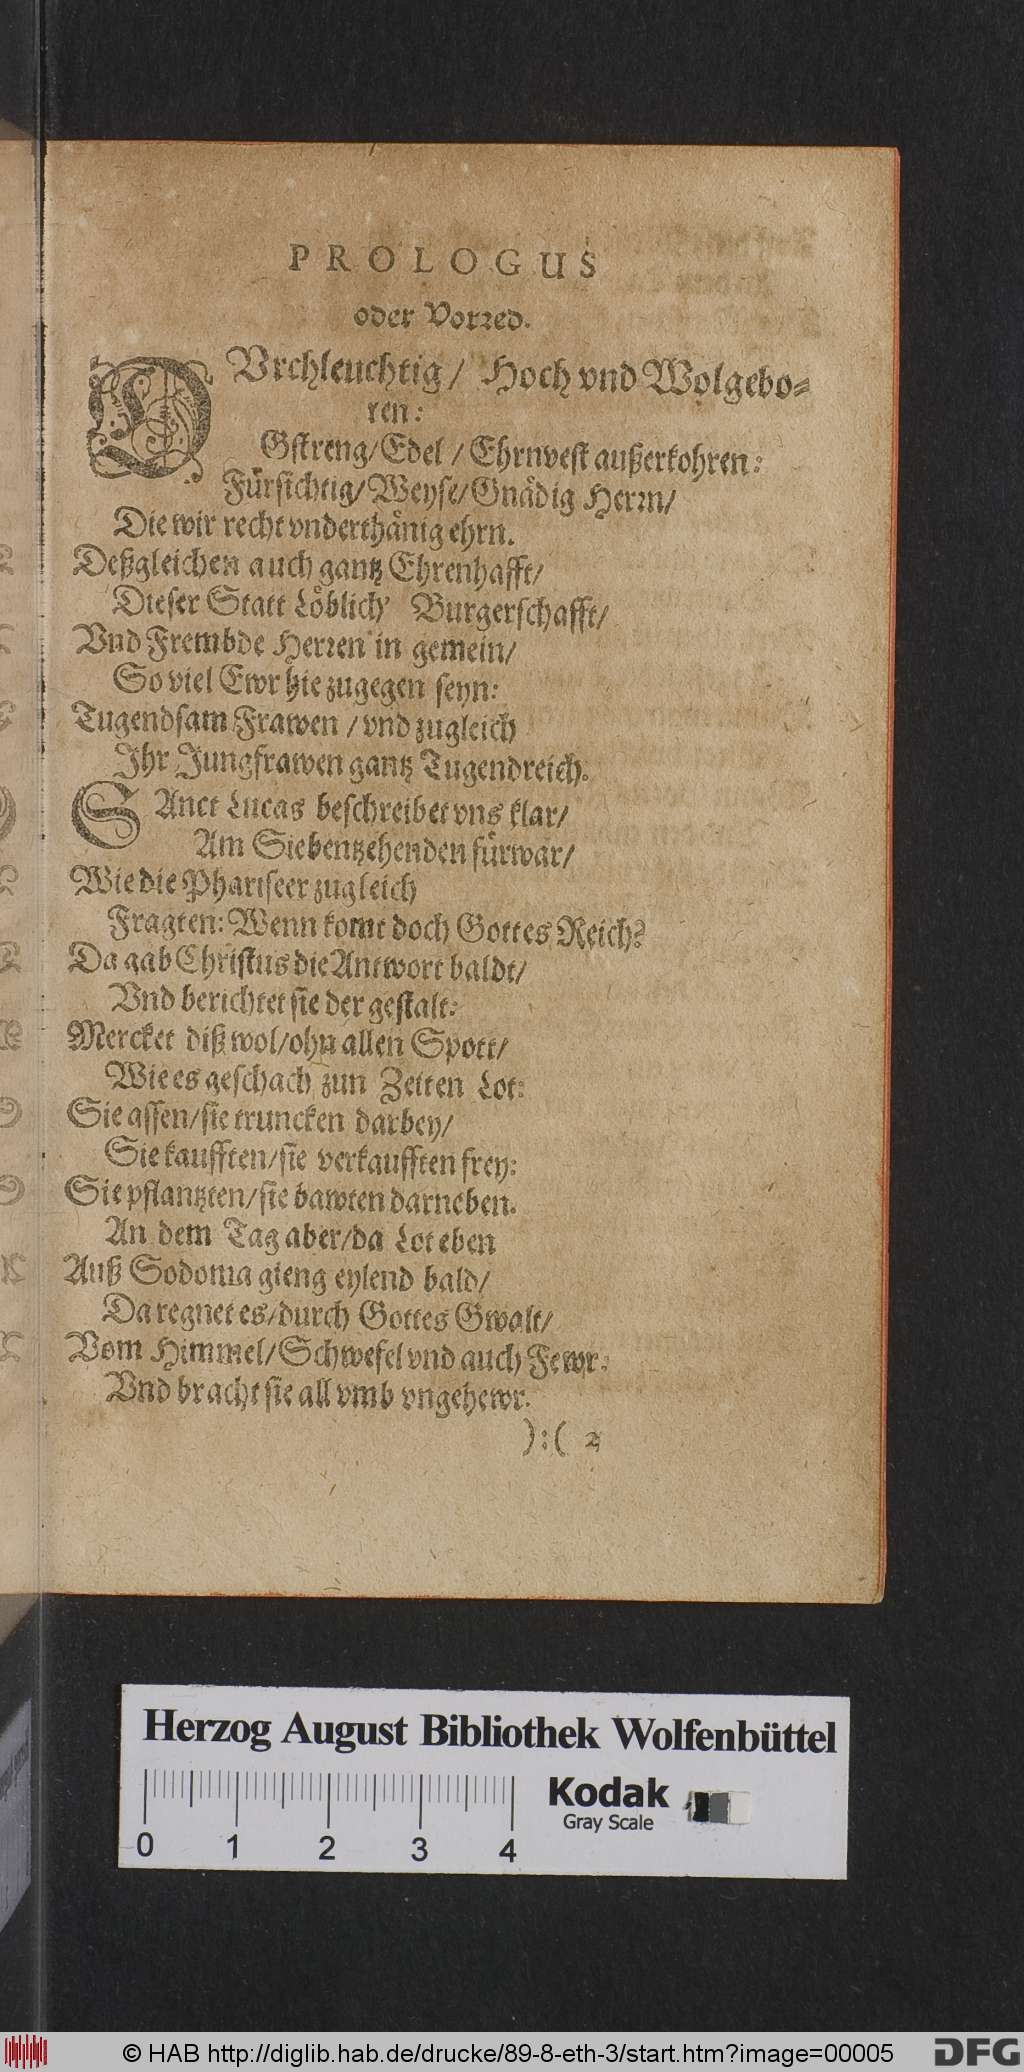 PROLOGUS
oder Vorred.
DVrchleuchtig/ Hoch vnd Wolgebo-
ren:
Gstreng/ Edel / Ehrnvest außerkohren:
Fürsichtig/ Weyse/ Gnädig Herrn/
Die wir recht vnderthänig ehrn.
Deßgleichen auch gantz Ehrenhafft/
Dieser Statt Löblich Burgerschafft/
Vnd Frembde Herren in gemein/
So viel Ewr hie zugegen seyn:
Tugendsam Frawen / vnd zugleich
Ihr Jungfrawen gantz Tugendreich.
SAnct Lucas beschreibet vns klar/
Am Siebentzehenden fürwar/
Wie die Phariseer zugleich
Fragten: Wenn komt doch Gottes Reich?
Da gab Christus die Antwort baldt/
Vnd berichtet sie der gestalt:
Mercket diß wol/ ohn allen Spott/
Wie es geschach zun Zeiten Lot:
Sie assen/ sie truncken darbey/
Sie kaufften/ sie verkaufften frey:
Sie pflantzten/ sie bawten darneben.
An dem Tag aber/ da Lot eben
Auß Sodoma gieng eylend bald/
Da regnet es/ durch Gottes Gwalt/
Vom Himmel/ Schwefel vnd auch Fewr:
Vnd bracht sie all vmb vngehewr.
):( 2
Herzog August Bibliothek Wolfenbüttel
Kodak
Gray Scale
0 1 2 3 4
© HAB http://diglib.hab.de/drucke/89-8-eth-3/start.htm?image=00005
DFG